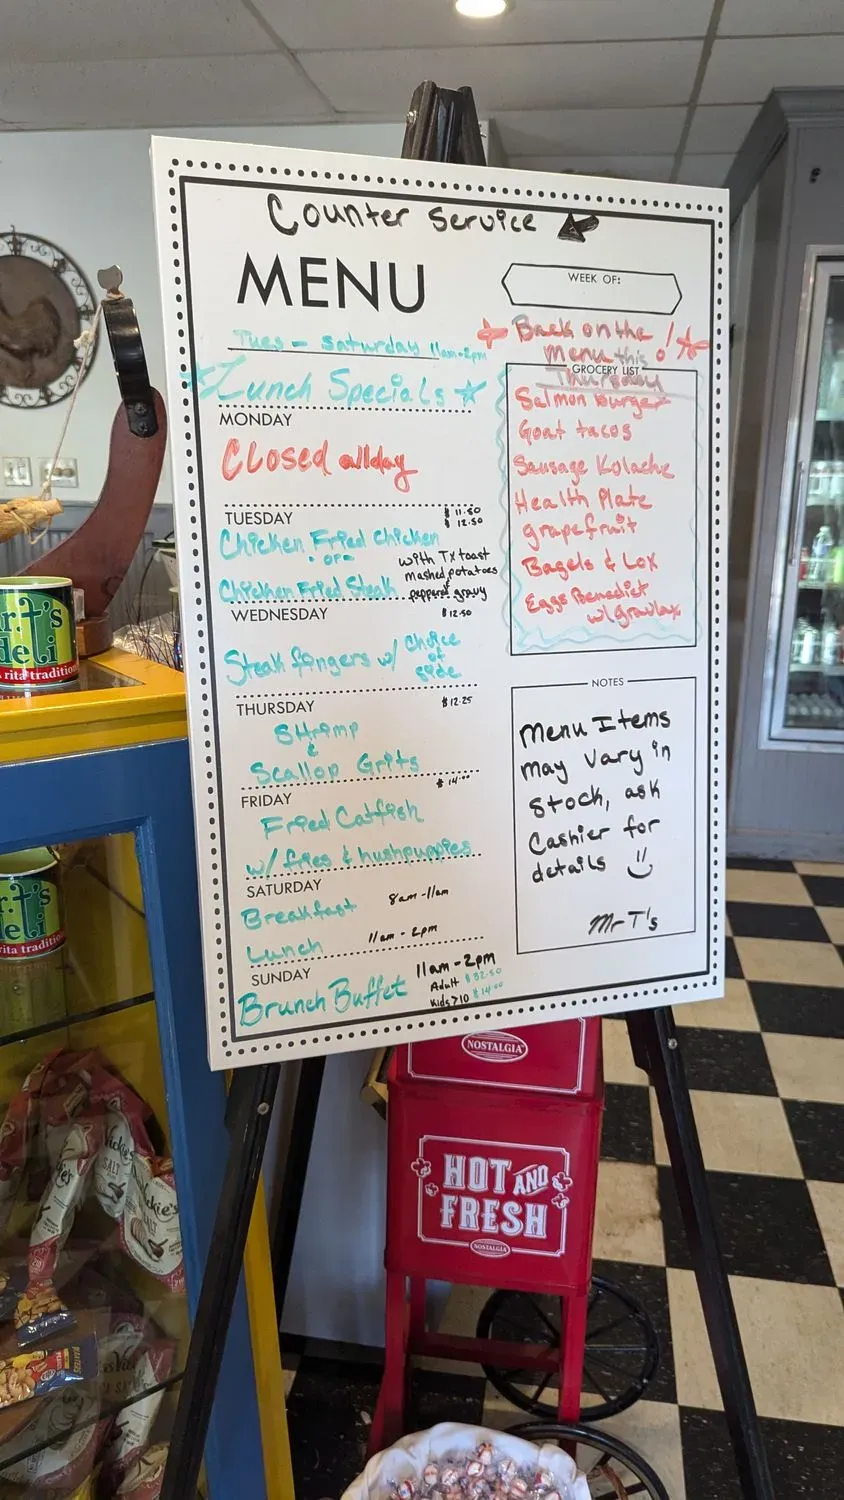 Counter Service
MENU
Tues - Saturday 11am-2pm
Lunch Specials
MONDAY
Closed allday
TUESDAY
$ 11.50
$ 12.50
Chicken Fried Chicken
-or-
Chicken Fried Steak
with Tx toast
mashed potatoes
pepperd gravy
WEDNESDAY
$12.50
Steak fingers w/ Choice
of
side
THURSDAY
$12.25
SHrimp
&
Scallop Grits
FRIDAY
$ 14.00
Fried Catfish
w/ fries & hushpuppies
SATURDAY
Breakfast 8am-11am
Lunch 11am - 2pm
SUNDAY
Brunch Buffet
11am-2pm
Adult $32.50
Kids>10 $14.00
WEEK OF:
Back on the
menu this !
Thursday
GROCERY LIST
Salmon burger
Goat tacos
Sausage Kolache
Health Plate
grapefruit
Bagels & Lox
Eggs Benedict
w/gravlax
NOTES
Menu Items
may vary in
Stock, ask
Cashier for
details
Mr T's
rt's
deli
rita tradition
rt's
deli
rita traditio
NOSTALGIA
HOT AND
FRESH
NOSTALGIA
SALT